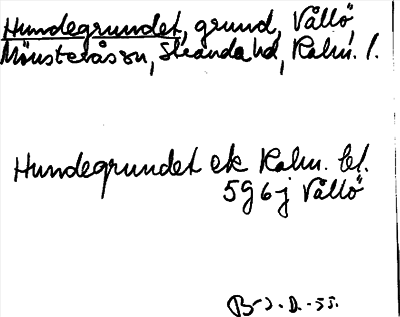 Hundegrundet, grund, Vållö,
Mönsterås sn, Stranda hd, Kalm. l.
Hundegrundet ek Kalm. bl.
5g6j Vållö